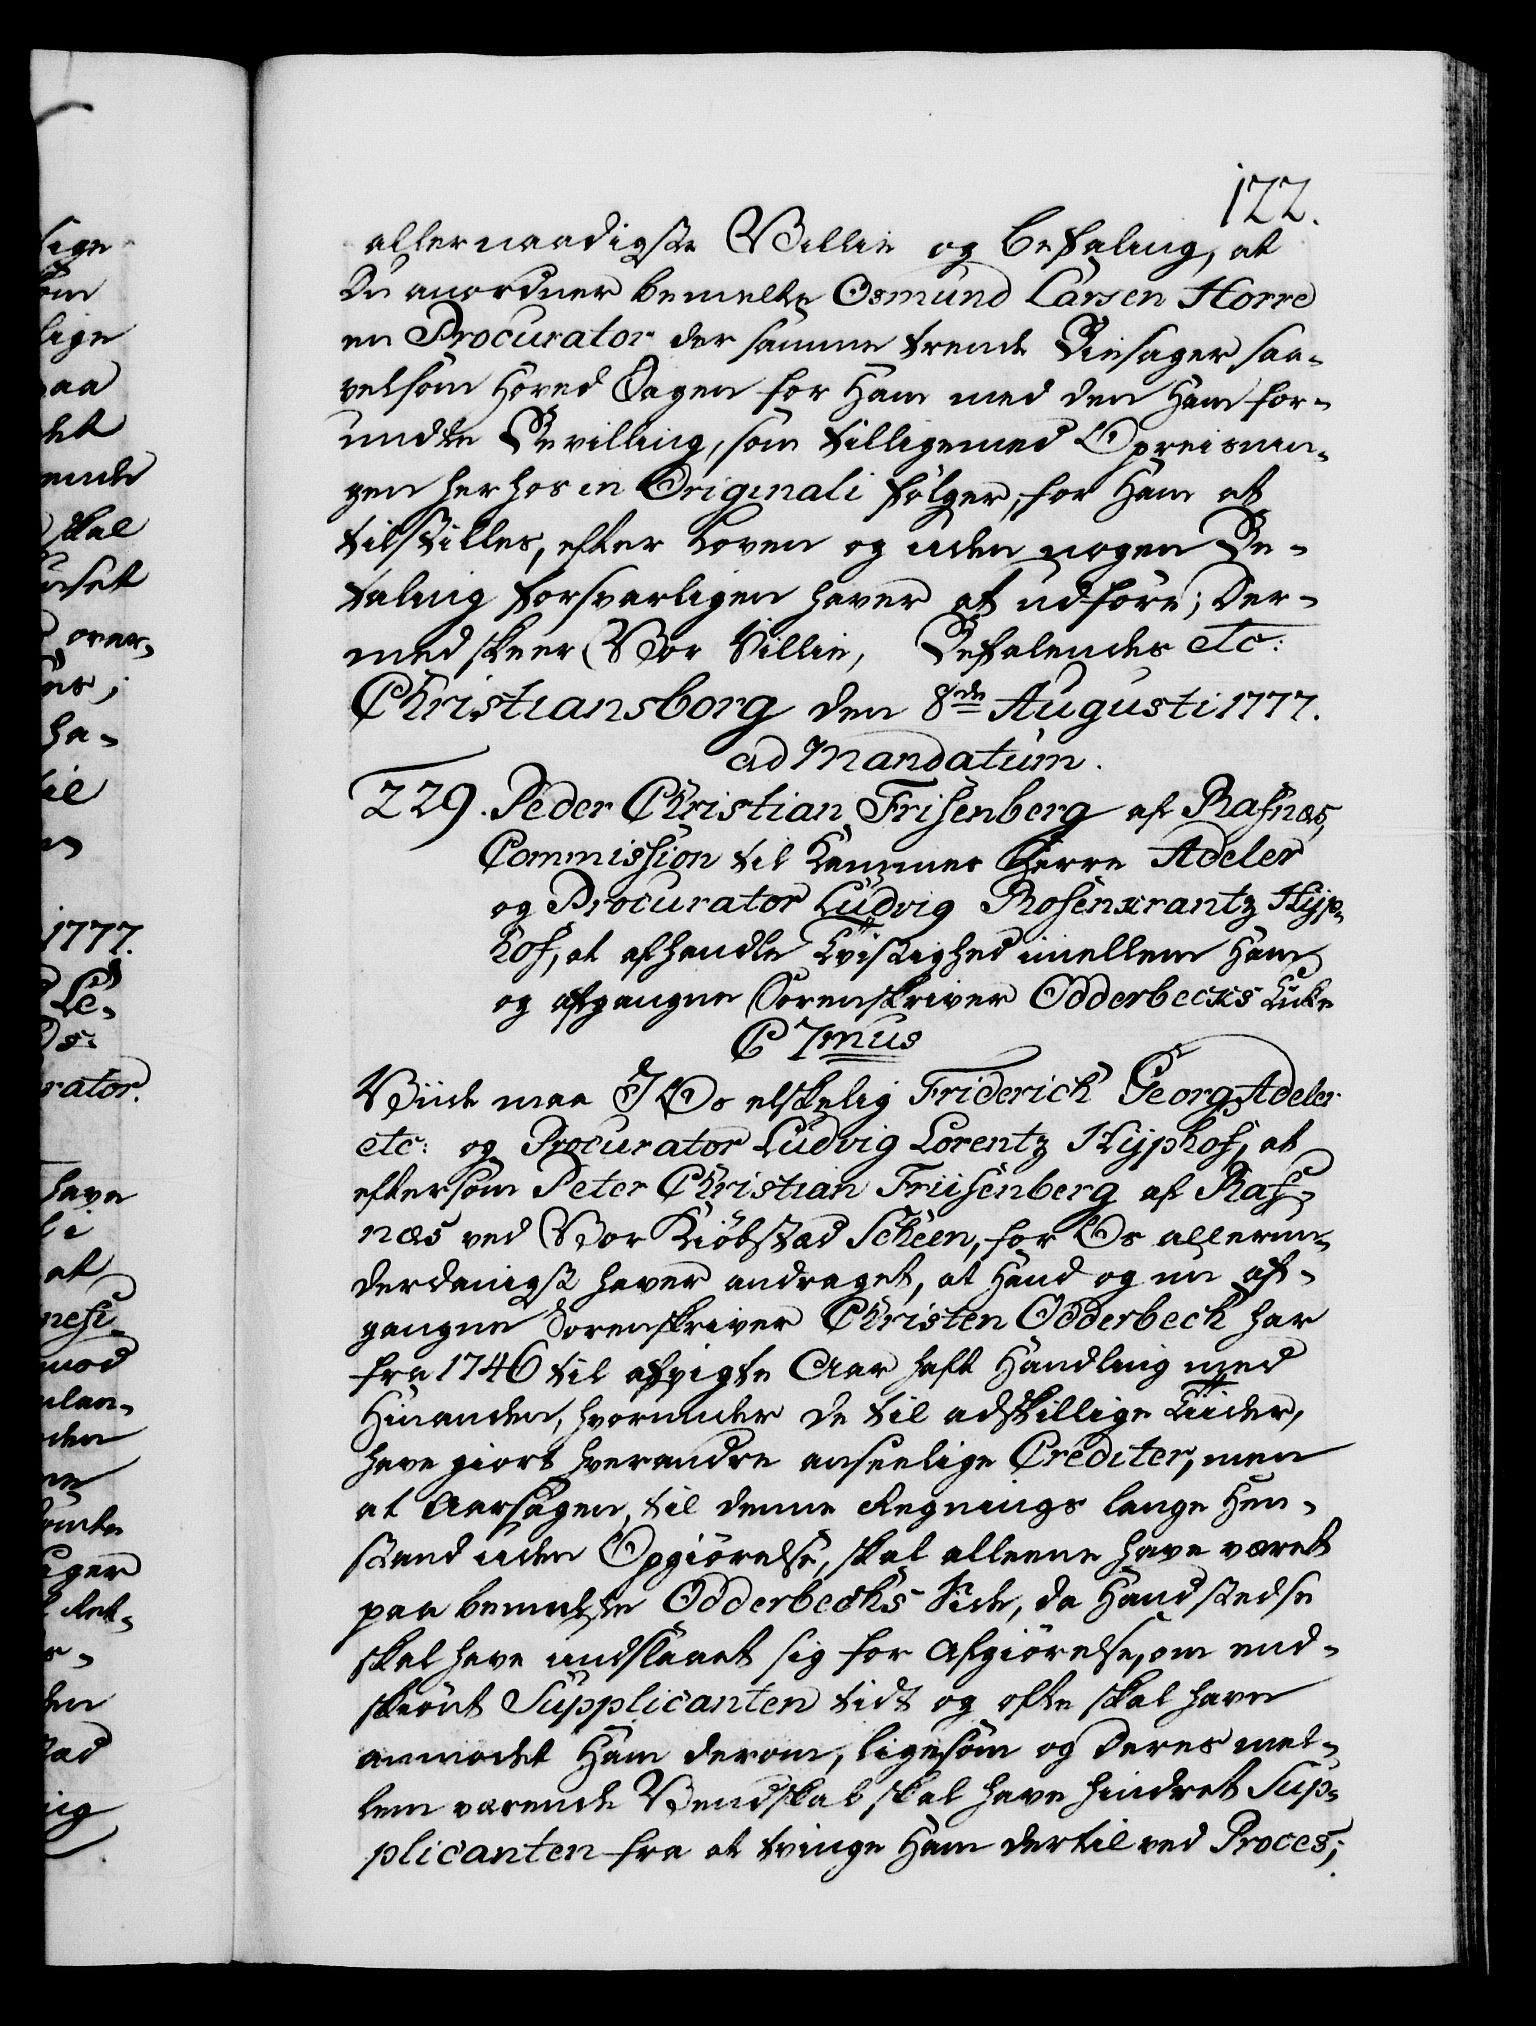 122.
allernaadigste Villie og Befaling, at
Du anordner bemelte Osmund Larsen Horre
en Procurator der samme trende Biesager saa-
velsom Hoved Sagen for Ham med den Ham for-
undte Bevilling, som tilligemed Opreisnin-
gen herhos in Originali følger, for Ham at
tilstilles, efter Loven og uden nogen Be-
taling forsvarligen haver at udføre; Der-
med skeer Vor Villie, Befalendes etc:
Christiansborg den 8de Augusti 1777.
ad Mandatum.
229. Peder Christian Frisenberg af Rafnæs,
Commission til Kammer Herre Adeler
og Procurator Ludvig Rosenkrantz Hyp-
hof, at afhandle Tvistighed imellem Ham
og afgangne Sorenskriver Odderbecks Enke
C 7mus
Viide maa I Os elskelig Friderich Georg Adeler
etc: og Procurator Ludvig Lorentz Hyphof, at
eftersom Peter Christian Friisenberg af Raf-
næs ved Vor Kiøbstad Scheen, for Os allerun-
derdanigst haver andraget, at Hand og nu af-
gangne Sorenskriver Christen Odderbeck har
fra 1746 til afvigte Aar haft Handling med
Hinanden, hvorunder de til adskillige Tiider,
have giort hverandre anseelige Crediter, men
at Aarsagen, til denne Regnings lange Hen-
stand uden Opgiørelse, skal alleene have været
paa bemeldte Odderbechs Side, da Hand stedse
skal have undslaaet sig for Afgiørelse, om end-
skiønt Supplicanten tidt og ofte skal have
anmodet Ham derom, ligesom og Deres mel-
lem værende Venskab skal have hindret Sup-
plicanten fra at tvinge Ham dertil ved Proces;